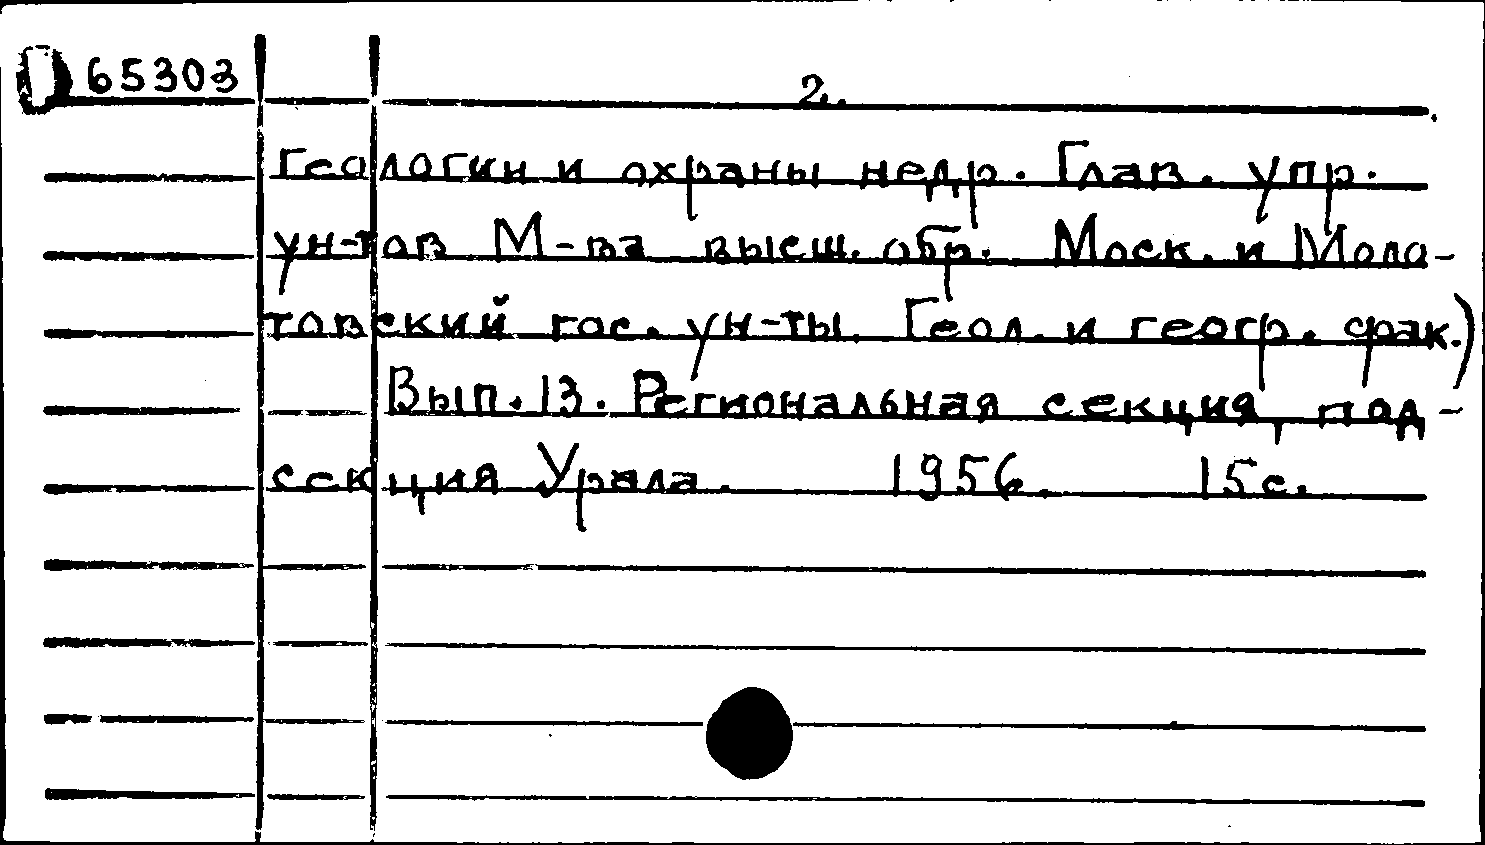 D 65303
2.
геологии и охраны недр. Глав. упр.
ун-тов М-ва высш. обр. Моск. и Моло-
товский гос. ун-ты. Геол. и геогр. фак.)
Вып. 13. Региональная секция, под-
секция Урала. 1956. 15 с.